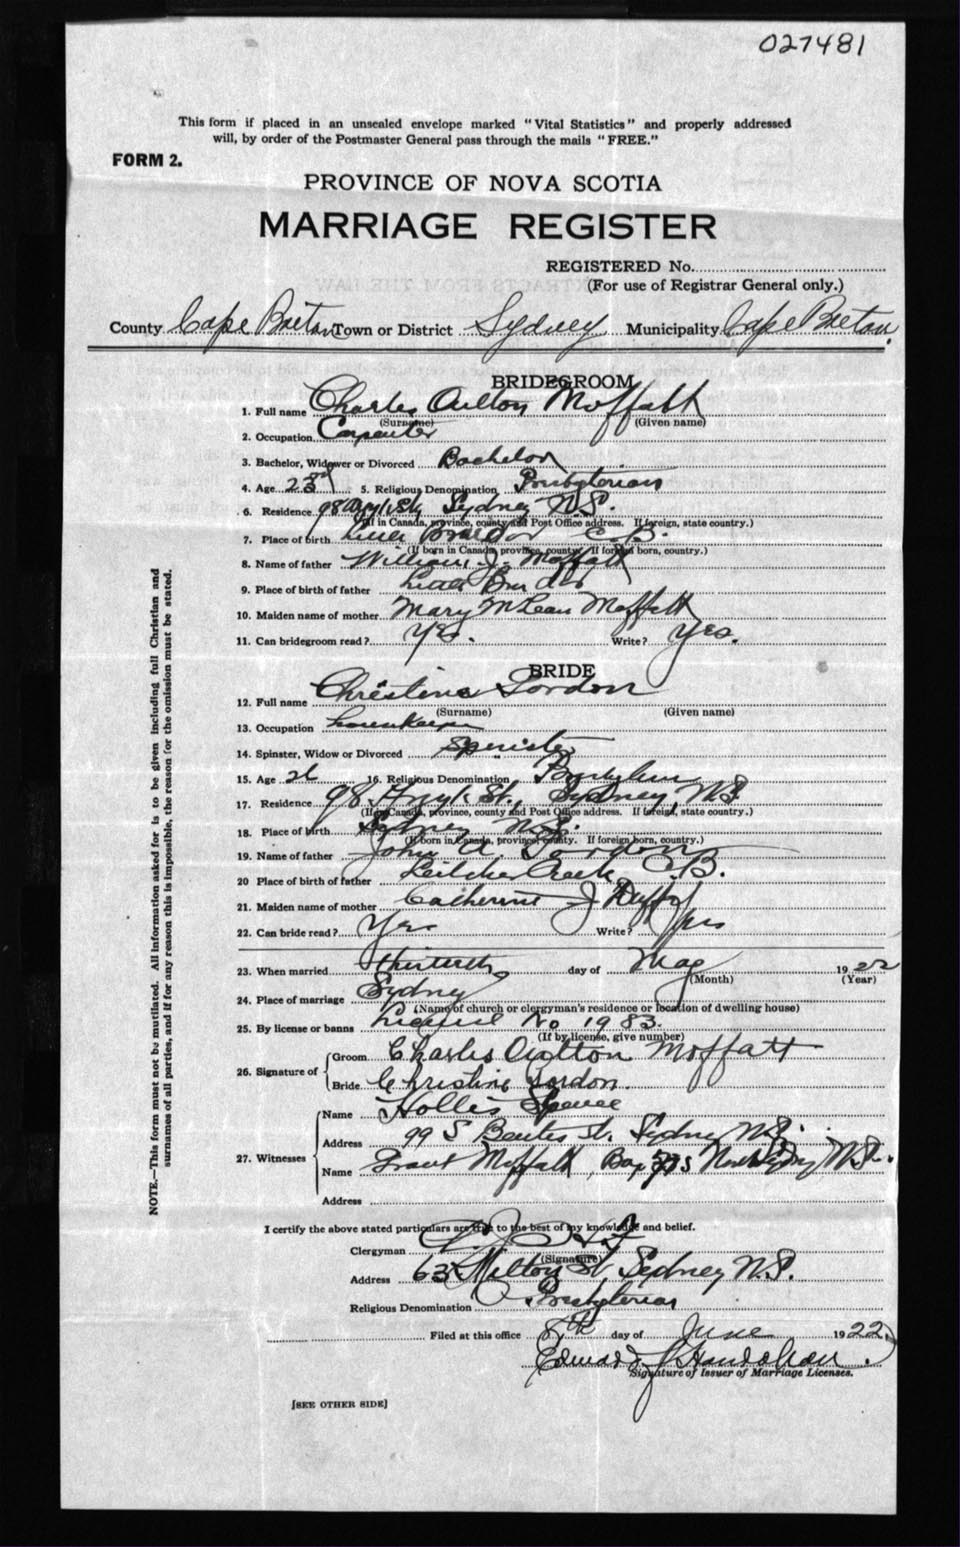 027481
This form if placed in an unsealed envelope marked "Vital Statistics" and properly addressed
will, by order of the Postmaster General pass through the mails "FREE."
FORM 2.
PROVINCE OF NOVA SCOTIA
MARRIAGE REGISTER
REGISTERED No.
(For use of Registrar General only.)
County Cape Breton Town or District Sydney Municipality Cape Breton
BRIDEGROOM
1. Full name Charles Aulton Moffatt
(Surname) (Given name)
2. Occupation Carpenter
3. Bachelor, Widower or Divorced Bachelor
4. Age 23 5. Religious Denomination Presbyterian
6. Residence 98 St. Sydney N.S.
(If in Canada, province, county and Post Office address. If foreign, state country.)
7. Place of birth Little Bras d'Or C.B.
(If born in Canada, province, county. If foreign born, country.)
8. Name of father William J. Moffatt
9. Place of birth of father Little Bras d'Or
10. Maiden name of mother Mary McLean Moffatt
11. Can bridegroom read? Yes. Write? Yes.
BRIDE
12. Full name Christine Gordon
(Surname) (Given name)
13. Occupation housekeeper
14. Spinster, Widow or Divorced Spinster
15. Age 26 16. Religious Denomination Presbyterian
17. Residence 98 St., Sydney N.S.
(If in Canada, province, county and Post Office address. If foreign, state country.)
18. Place of birth Sydney N.S.
(If born in Canada, province, county. If foreign born, country.)
19. Name of father John A Gordon
20 Place of birth of father Leitches Creek C.B.
21. Maiden name of mother Catherine J
22. Can bride read? Yes Write? yes
23. When married thirtieth day of May 1922
(Month) (Year)
24. Place of marriage Sydney
(Name of church or clergyman's residence or location of dwelling house)
25. By license or banns License No 1983.
(If by license, give number)
26. Signature of
Groom Charles Aulton Moffatt
Bride Christine Gordon.
27. Witnesses
Name Hollis Spence
Address 99 S Bentick St. Sydney N.S.
Name Grant Moffatt, Box North Sydney N.S.
Address
I certify the above stated particulars are true to the best of my knowledge and belief.
Clergyman
(Signature)
Address 63 Milton St Sydney N.S.
Religious Denomination Presbyterian
Filed at this office 8th day of June 1922.
Edward J Hanrahan.
Signature of Issuer of Marriage Licenses.
[SEE OTHER SIDE]
NOTE.—This form must not be mutilated. All information asked for is to be given including full Christian and
surnames of all parties, and if for any reason this is impossible, the reason for the omission must be stated.